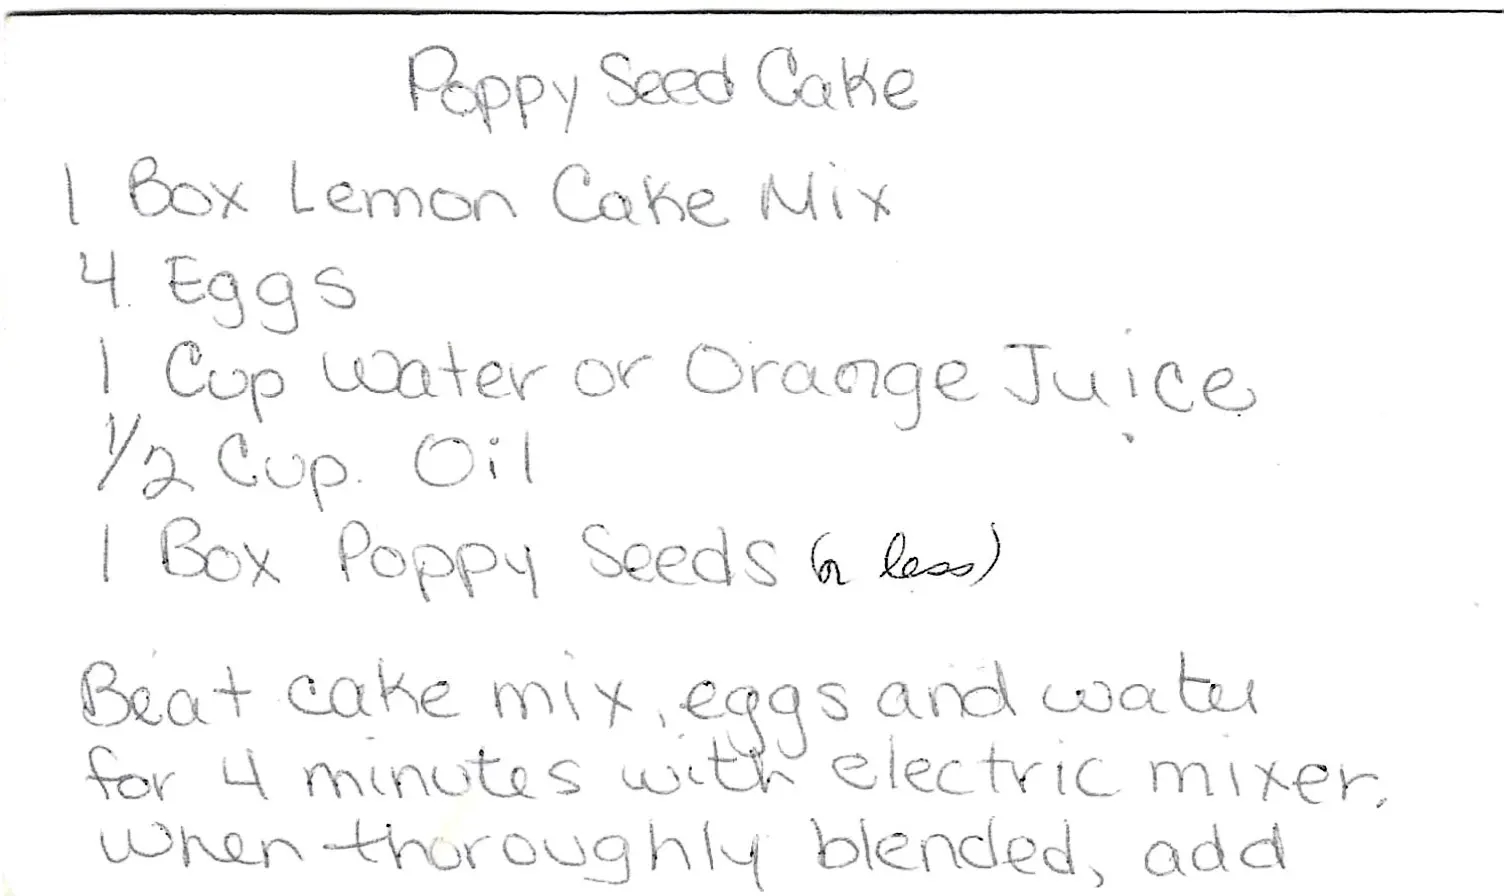 Poppy Seed Cake
1 Box Lemon Cake Mix
4 Eggs
1 Cup Water or Orange Juice
1/2 Cup. Oil
1 Box Poppy Seeds (or less)
Beat cake mix, eggs and water
for 4 minutes with electric mixer.
When thoroughly blended, add